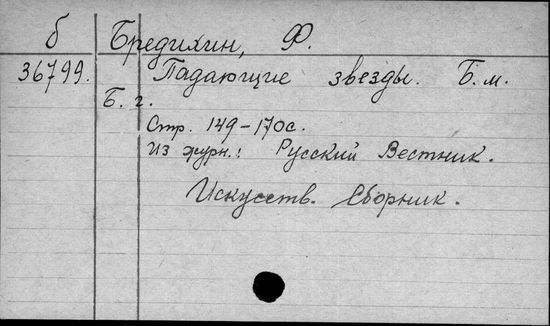 б Бредихин, Ф.
36799. Падающие звезды. Б.м.
Б. г.
Стр. 149-170с.
Из журн.: Русский Вестник.
Искусств. Сборник.